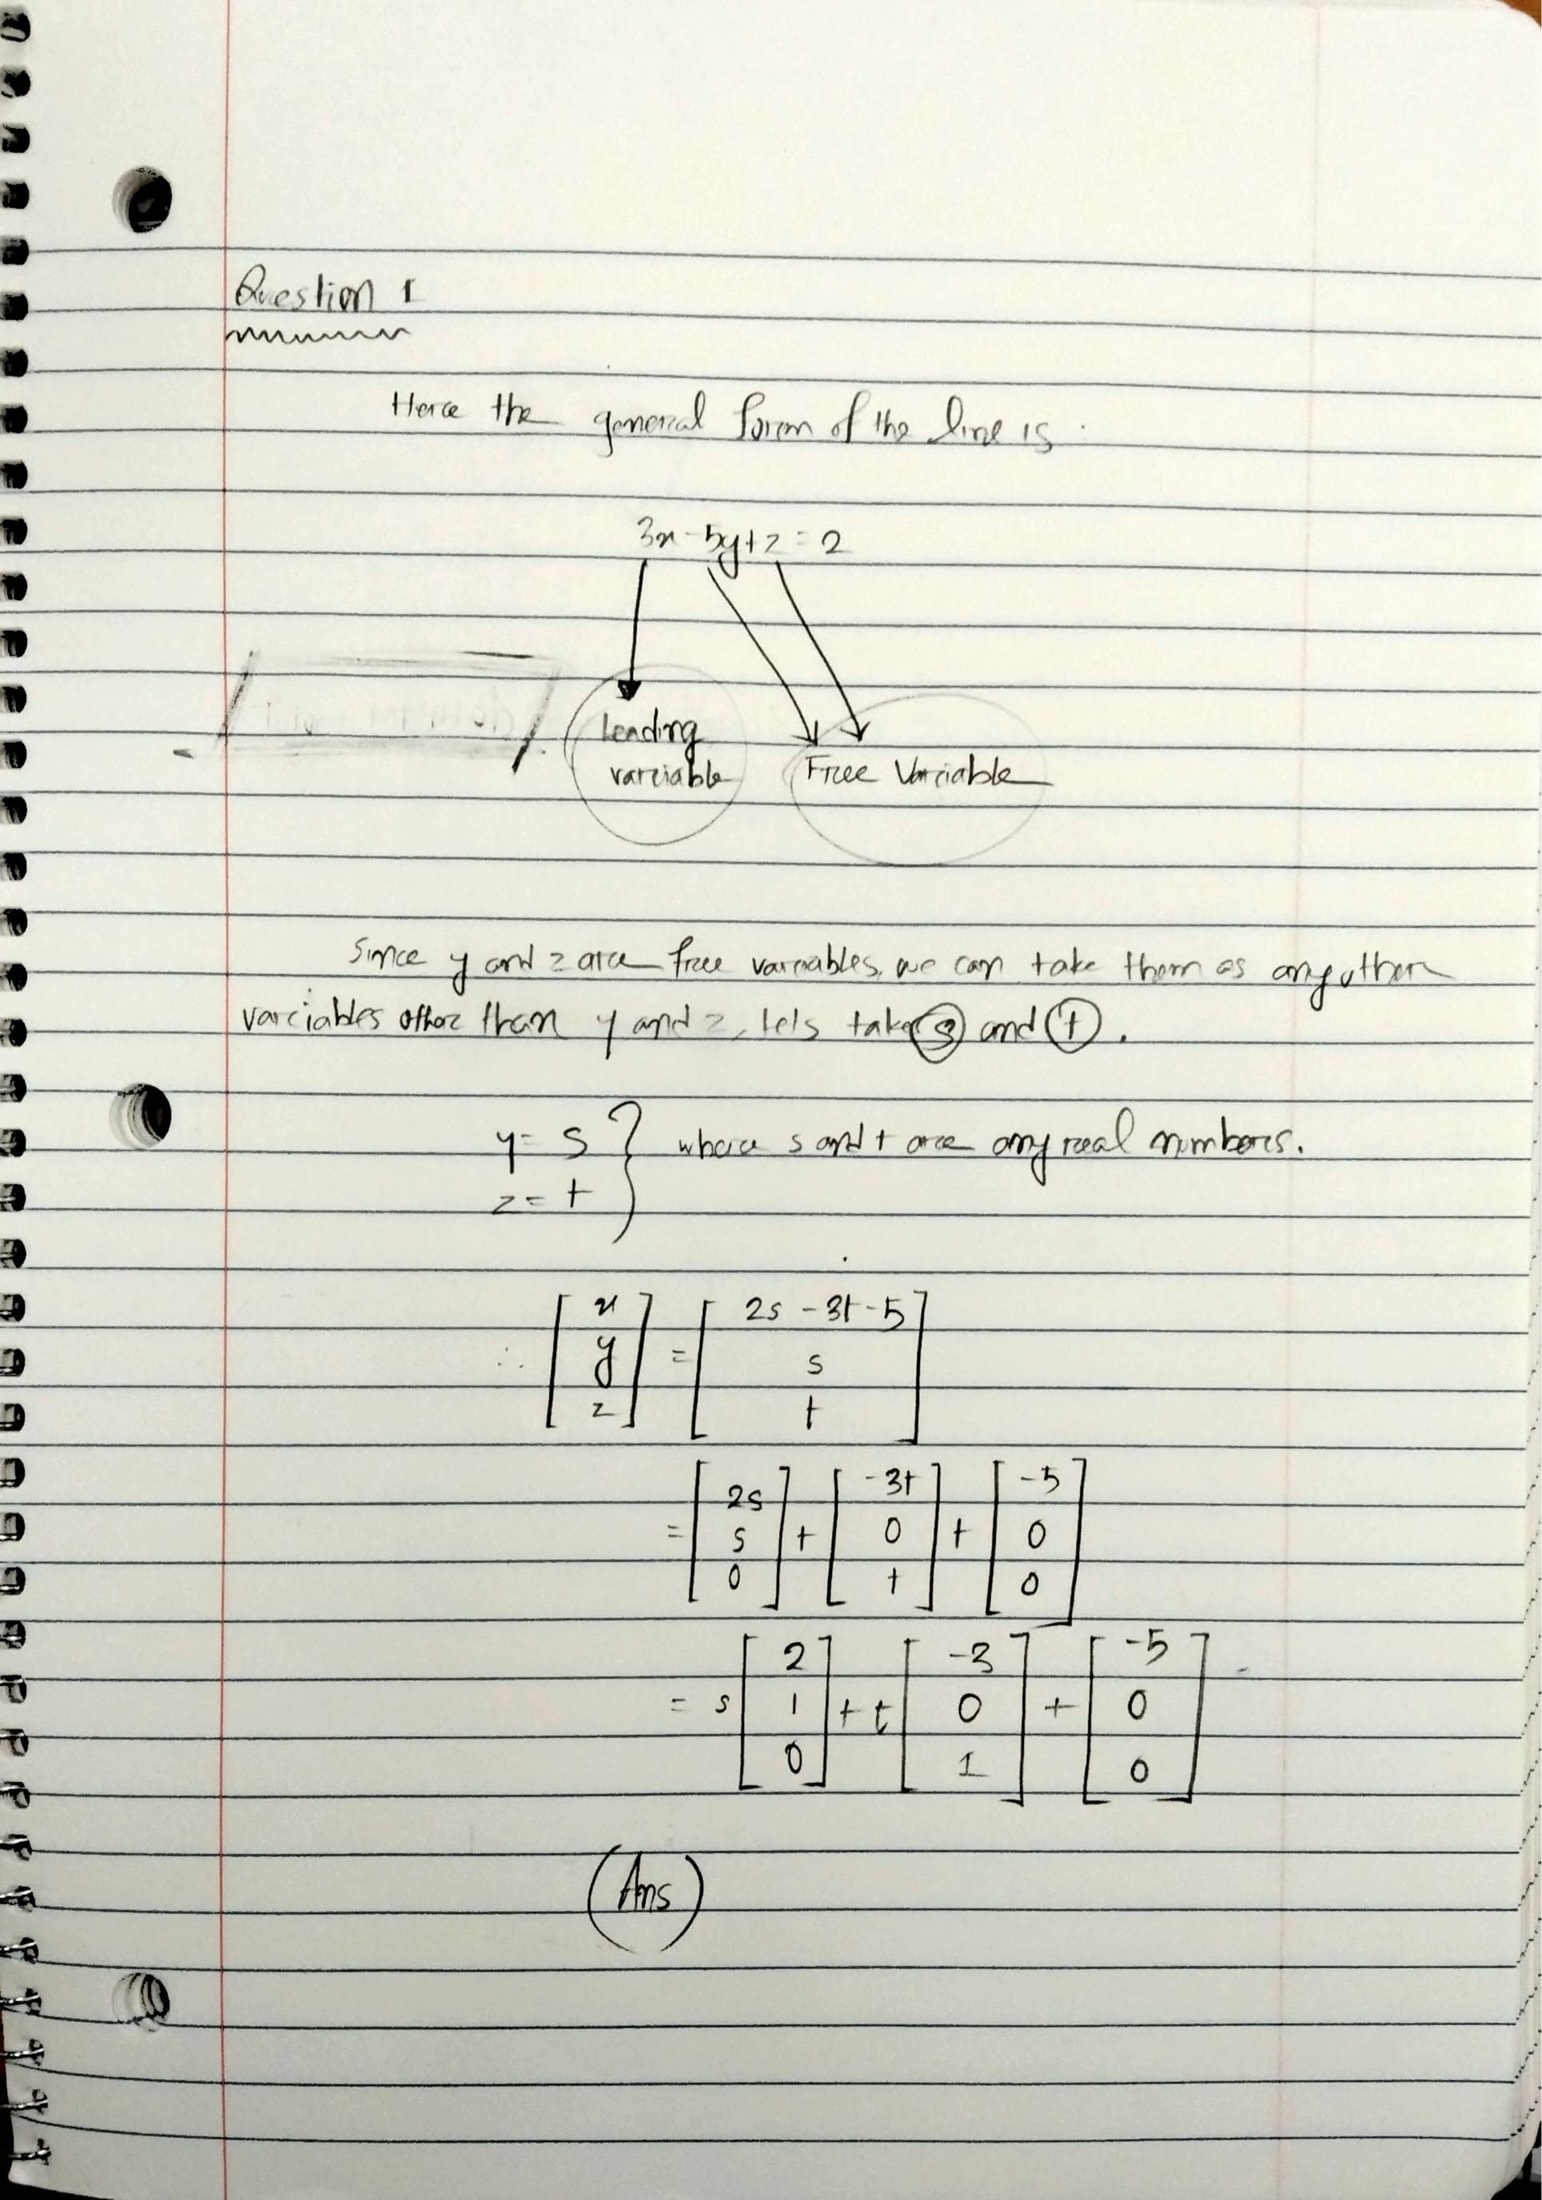 Question 1
Here the general form of the line is
3x-5y+z=2
Leading
variable
Free Variable
Since y and z are free variables, we can take them as any other
variables other than y and z, lets take s and t.
y = s } where s and t are any real numbers.
z = t
∴ [x y z] = [2s - 3t - 5 s t]
= [2s s 0] + [-3t 0 t] + [-5 0 0]
= s [2 1 0] + t [-3 0 1] + [-5 0 0]
(Ans)